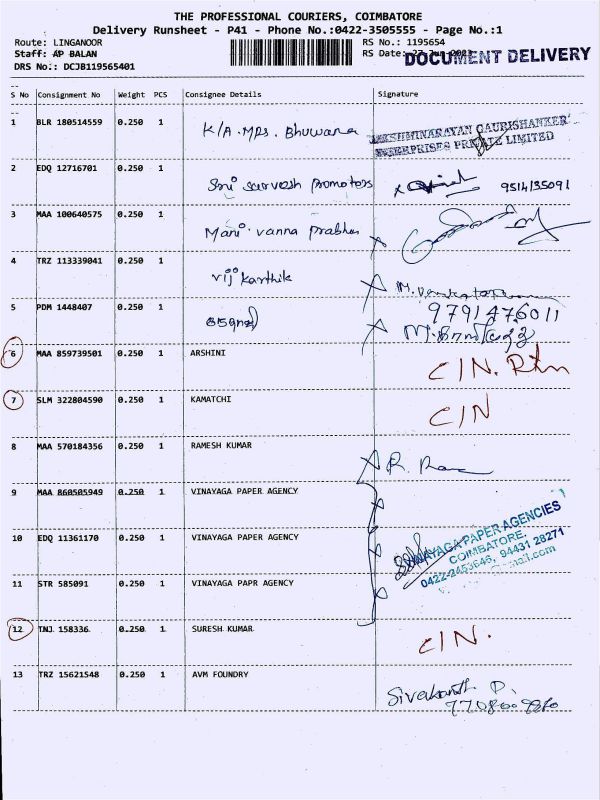 THE PROFESSIONAL COURIERS, COIMBATORE
Delivery Runsheet - P41 - Phone No.:0422-3505555 - Page No.:1
Route: LINGANOOR
RS No.: 1195654
Staff: AP BALAN
RS Date: 27 Jun 2023
DOCUMENT DELIVERY
DRS No.: DCJB119565401
S No Consignment No Weight PCS Consignee Details Signature
1 BLR 180514559 0.250 1 K/A. Mrs. Bhuwana
LAKSHMINARAYAN GAURISHANKER
ENTERPRISES PRIVATE LIMITED
2 EDQ 12716701 0.250 1 Sri sarvesh promoters 9514135091
3 MAA 100640575 0.250 1 Mani vanna prabhu
4 TRZ 113339041 0.250 1 vij karthik
5 PDM 1448407 0.250 1
9791476011
6 MAA 859739501 0.250 1 ARSHINI C/N. Rtn
7 SLM 322804590 0.250 1 KAMATCHI C/N
8 MAA 570184356 0.250 1 RAMESH KUMAR
9 MAA 860505949 0.250 1 VINAYAGA PAPER AGENCY
10 EDQ 11361170 0.250 1 VINAYAGA PAPER AGENCY
VINAYAGA PAPER AGENCIES
COIMBATORE.
0422-2453646, 94431 28271
11 STR 585091 0.250 1 VINAYAGA PAPR AGENCY
12 TNJ 158336 0.250 1 SURESH KUMAR C/N.
13 TRZ 15621548 0.250 1 AVM FOUNDRY Sivakanth P.